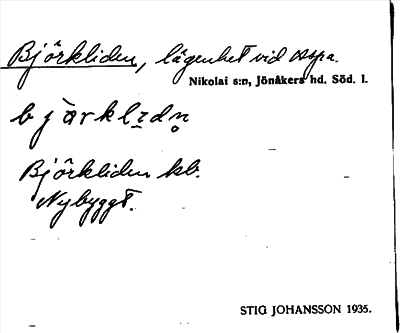 Björkliden, lägenhet vid Aspa.
Nikolai s:n, Jönåkers hd. Söd. l.
b j ä̀ r k l ı̱ d n̥
Björkliden kb.
Nybyggt.
STIG JOHANSSON 1935.